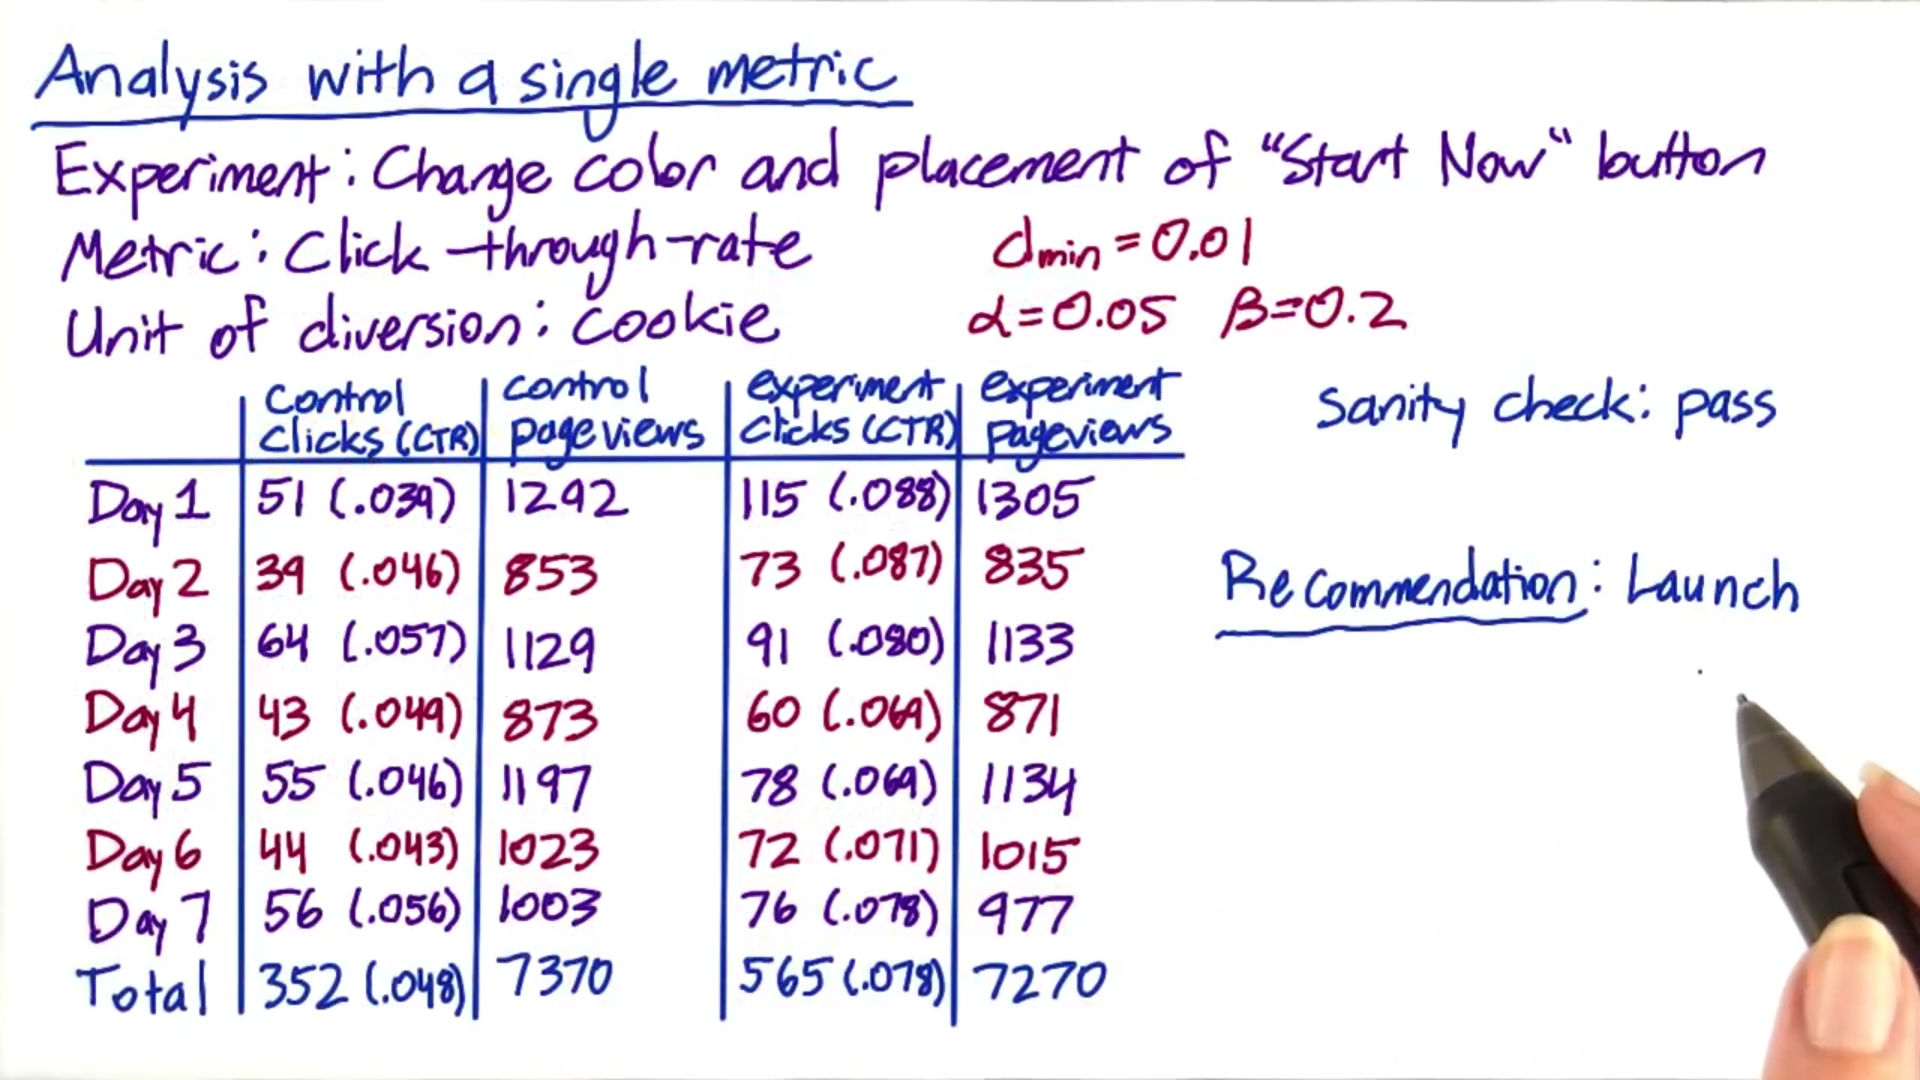 Analysis with a single metric
Experiment: Change color and placement of "Start Now" button
Metric: Click-through-rate dmin = 0.01
Unit of diversion: cookie α=0.05 β=0.2
control clicks (CTR) control pageviews experiment clicks (CTR) experiment pageviews
sanity check: pass
Day 1 51 (.039) 1292 115 (.088) 1305
Day 2 39 (.046) 853 73 (.087) 835
Day 3 64 (.057) 1129 91 (.080) 1133
Day 4 43 (.049) 873 60 (.069) 871
Day 5 55 (.046) 1197 78 (.069) 1134
Day 6 44 (.043) 1023 72 (.071) 1015
Day 7 56 (.056) 1003 76 (.078) 977
Total 352 (.048) 7370 565 (.078) 7270
Recommendation: Launch